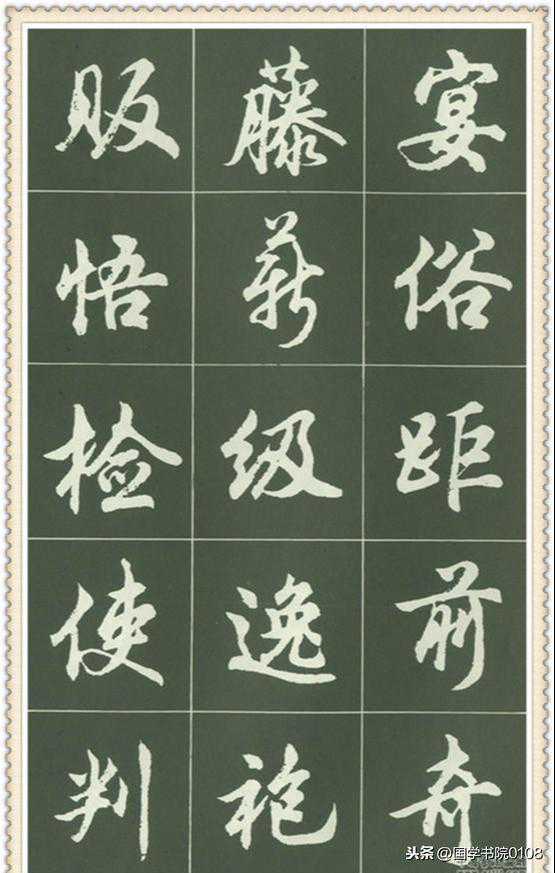 宴俗距前奇
藤薪级逸袍
贩悟检使判
头条 @国学书院0108